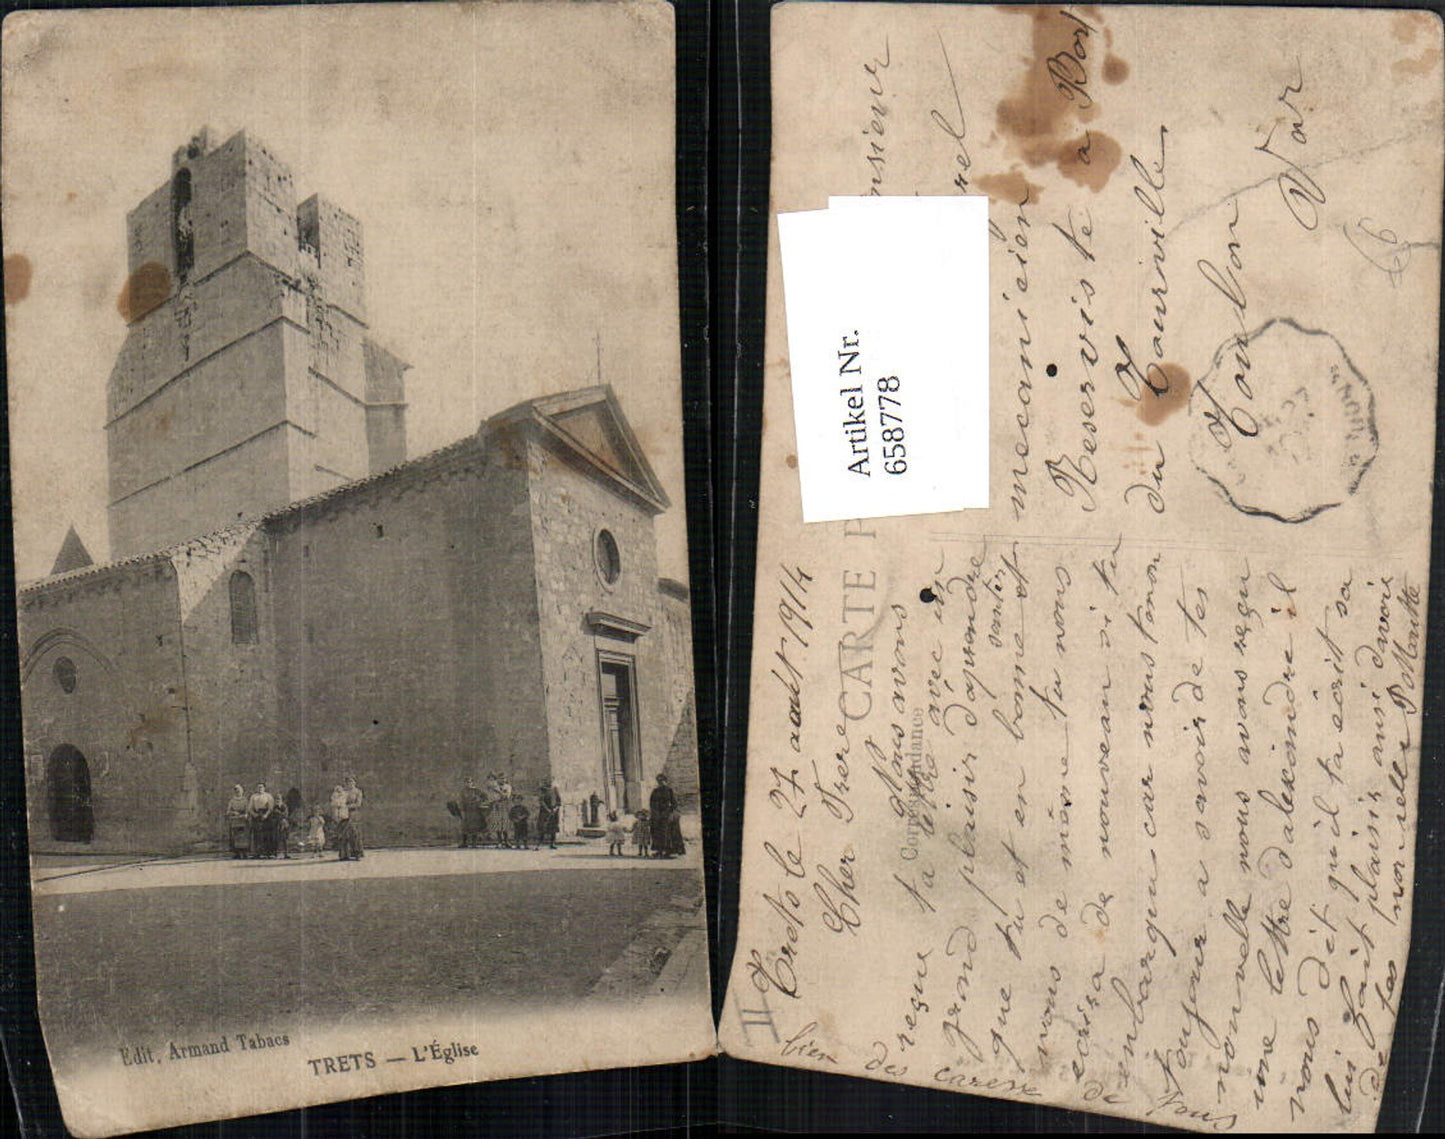 Edit, Armand Tabacs
TRETS — L'Église
Artikel Nr.
658778
CARTE P
Correspondance
Trets le 27 aout 1914
Cher Frere
Nous avons
reçue ta lettre avec un
grond plaisir d'aprondre
que tu et en bonne santer et
nous de même tu nous
ecrira de nouveau si tu
de enbarque car nous tanon
Toujour a savoir de tes
nouvelle nous avons reçu
une lettre d'alexondre il
nous dit qu'il ta ecrit sa
lui fait plaisir ausi d'avoir
de tas nouvelle
bien des caresse de tous
nsieur
rel
mecanicien
Reserviste a Bor
du Tourville
Toulon
Var